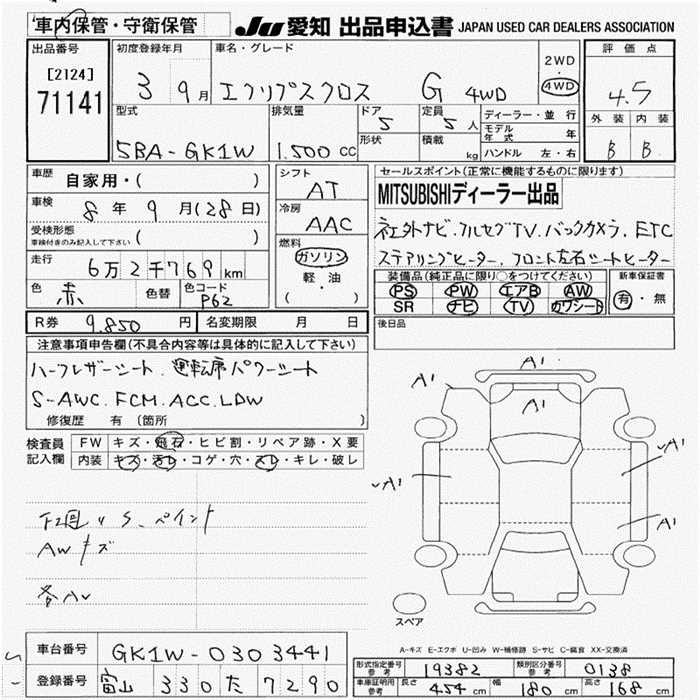 車内保管・守衛保管
JU 愛知 出品申込書 JAPAN USED CAR DEALERS ASSOCIATION
出品番号
[2124]
71141
初度登録年月
3 9月
車名・グレード
エクリプスクロス G 4WD
2WD
4WD
評価点
4.5
外装 内装
B B
型式
5BA-GK1W
排気量
1.500 cc
ドア
5
形状
定員
5人
積載
kg
ディーラー・並行
モデル年式 年
ハンドル 左・右
車歴
自家用・( )
車検
8年 9月(28日)
受検形態
車検付きのみ記入して下さい ( )
走行
6万2千769km
色
赤
色替
色コード
P62
シフト
AT
冷房
AAC
燃料
ガソリン
軽・油
( )
セールスポイント(正常に機能するものに限ります)
MITSUBISHIディーラー出品
社外ナビ.フルセグTV.バックカメラ.ETC
ステアリングヒーター.フロント左右シートヒーター
装備品(純正品に限り○をつけてください)
PS PW エアB AW
SR ナビ TV カワシート
新車保証書
有・無
R券 9.850円
名変期限 月 日
後日品
注意事項申告欄(不具合内容等は具体的に記入して下さい)
ハーフレザーシート.運転席パワーシート
S-AWC.FCM.ACC.LDW
修復歴 有(箇所 )
検査員記入欄
FW キズ・飛石・ヒビ割・リペア跡・X要
内装 キズ・汚レ・コゲ・穴・スレ・キレ・破レ
S、ペイント
AWキズ
各A
A1
A1
A1
A1
A1
A1
スペア
A-キズ E-エクボ U-凹み W-補修跡 S-サビ C-腐食 XX-交換済
車台番号
GK1W-0303441
登録番号
富山 330 た 7290
形式指定番号 参考 19382
類別区分番号 参考 0138
車庫証明用 参考 長さ 4.54cm 幅 180cm 高さ 168cm